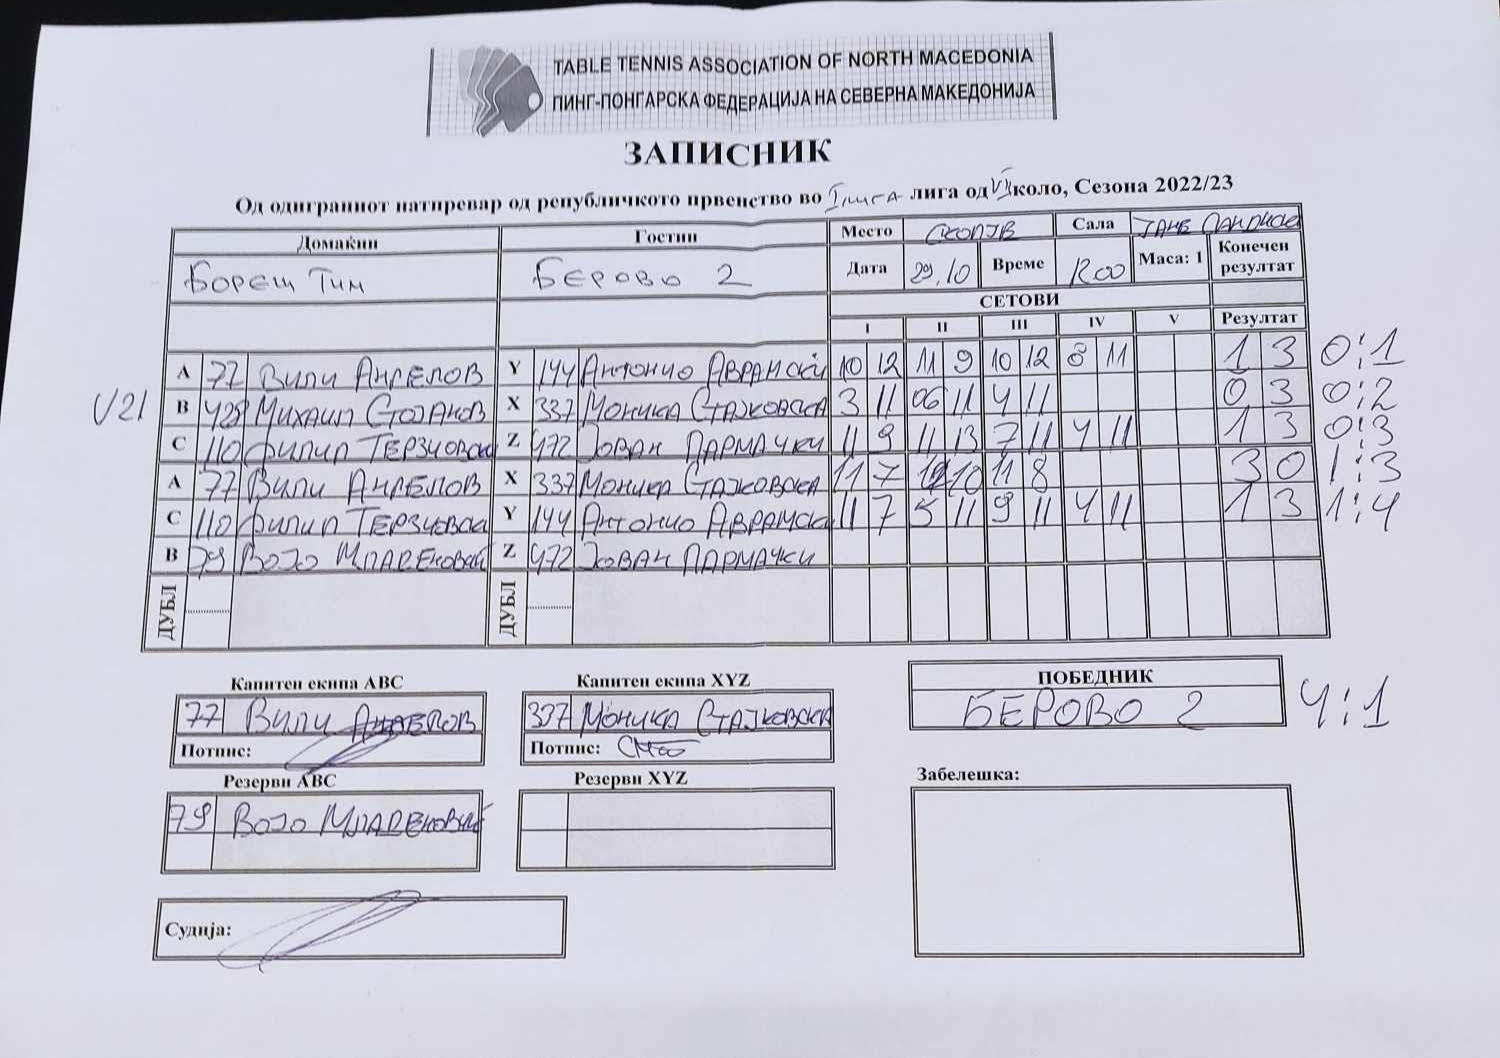 TABLE TENNIS ASSOCIATION OF NORTH MACEDONIA
ПИНГ-ПОНГАРСКА ФЕДЕРАЦИЈА НА СЕВЕРНА МАКЕДОНИЈА
ЗАПИСНИК
Од одиграниот натпревар од републичкото првенство во I лига лига од VII коло, Сезона 2022/23
Домаќин Гостин Место СКОПЈЕ Сала ЈАНЕ САНДАНСКИ
БОРЕЦ ТИМ БЕРОВО 2 Дата 29.10 Време Маса: 1 Конечен резултат
СЕТОВИ
I II III IV V Резултат
A 77 ВИЛИ АНГЕЛОВ Y 144 АНТОНИО АВРАМСКИ 10 12 11 9 10 12 8 11 1 3 0:1
U21 B 428 МИХАИЛ СТОЈАНОВ X 337 МОНИКА СТАЈКОВСКА 3 11 06 11 4 11 0 3 0:2
C 110 ФИЛИП ТЕРЗИОВСКИ Z 472 ЈОВАН ПАРМАЧКИ 11 9 11 13 7 11 4 11 1 3 0:3
A 77 ВИЛИ АНГЕЛОВ X 337 МОНИКА СТАЈКОВСКА 11 7 12 10 11 8 3 0 1:3
C 110 ФИЛИП ТЕРЗИОВСКИ Y 144 АНТОНИО АВРАМСКИ 11 7 5 11 9 11 4 11 1 3 1:4
B 79 ВОЈО МЛАДЕНОВСКИ Z 472 ЈОВАН ПАРМАЧКИ
ДУБЛ ДУБЛ
Капитен екипа ABC Капитен екипа XYZ ПОБЕДНИК
77 ВИЛИ АНГЕЛОВ 337 МОНИКА СТАЈКОВСКА БЕРОВО 2 4:1
Потпис: Потпис:
Резерви ABC Резерви XYZ Забелешка:
79 ВОЈО МЛАДЕНОВСКИ
Судија: